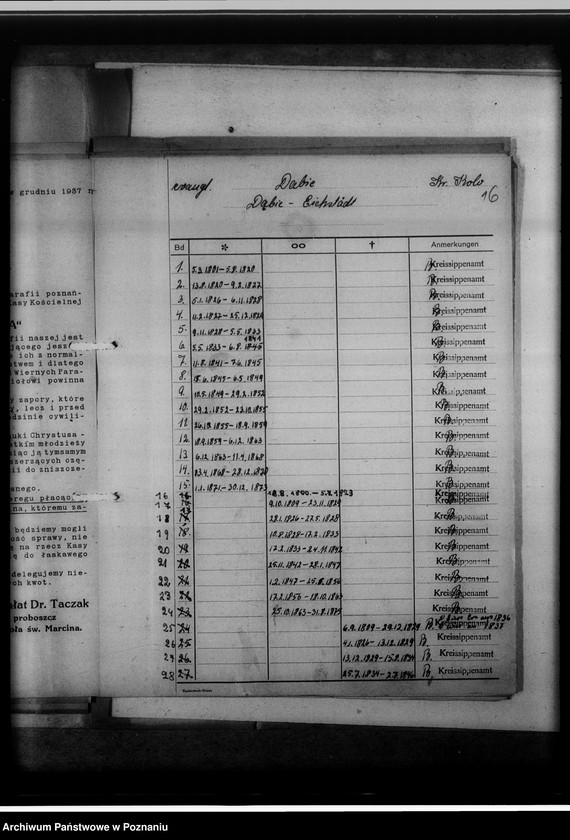 w grudniu 1937 r.
arafii poznań-
Kasy Kościelnej
A"
fii naszej jest
jącego jeszc
e ich z normal-
twem i dlatego
Wiernych Para-
iołowi powinna
y zapory, które
, lecz i przed
dzinie cywili-
auki Chrystusa -
atkim młodzieży
niąc ją tymsamym
szerzących czę-
ii do zniszcze-
wnego.
eregu płacąc
na, któremu za-
będziemy mogli
ość sprawy, nie
ę na rzecz Kasy
ę do łaskawego
delegujemy nie-
ch kwot.
łat Dr. Taczak
proboszcz
oła św. Marcina.
evangl. Dabie Kr. Kolo
Dąbie - Eichstädt 16
Bd * oo † Anmerkungen
1. 5.3.1801 - 5.8.1820 Kreissippenamt
2. 13.8.1820 - 9.2.1822 Kreissippenamt
3. 5.1.1826 - 6.11.1828 Kreissippenamt
4. 11.2.1827 - 25.12.1826 Kreissippenamt
5. 9.11.1828 - 5.5.1833 Kreissippenamt
6 5.5.1833 - 6.8. 1841 Kreissippenamt
7. 11.8.1841 - 7.6.1845 Kreissippenamt
8. 18.6.1845 - 6.5.1849 Kreissippenamt
9. 10.5.1849 - 29.2.1852 Kreissippenamt
10. 29.2.1852 - 23.10.1855 Kreissippenamt
11. 26.10.1855 - 18.9.1859 Kreissippenamt
12. 18.9.1859 - 6.12.1863 Kreissippenamt
13 6.12.1863 - 11.4.1868 Kreissippenamt
14. 23.4.1868 - 28.12.1870 Kreissippenamt
15. 1.1.1871 - 30.12.1873 Kreissippenamt
16 18.8.1800. - 5.8.1823 Kreissippenamt
17 9.10.1809 - 23.11.1829 Kreissippenamt
18 28.1.1826 - 27.5.1828 Kreissippenamt
19 10.8.1828 - 17.2.1833 Kreissippenamt
20 17.2.1833 - 24.11.1842 Kreissippenamt
21 25.11.1842 - 28.1.1847 Kreissippenamt
22 1.2.1847 - 25.8.1856 Kreissippenamt
23 17.2.1856 - 18.10.1863 Kreissippenamt
24 25.10.1863 - 31.8.1875 Kreissippenamt
25 6.9.1809 - 29.12.1829 B. Kreissippenamt
26 25. 4.1.1826 - 13.12.1829 B. Kreissippenamt
27 26. 13.12.1829 - 15.8.1834 B. Kreissippenamt
28 27. 25.7.1834 - 2.7.1846 B. Kreissippenamt
Archiwum Państwowe w Poznaniu